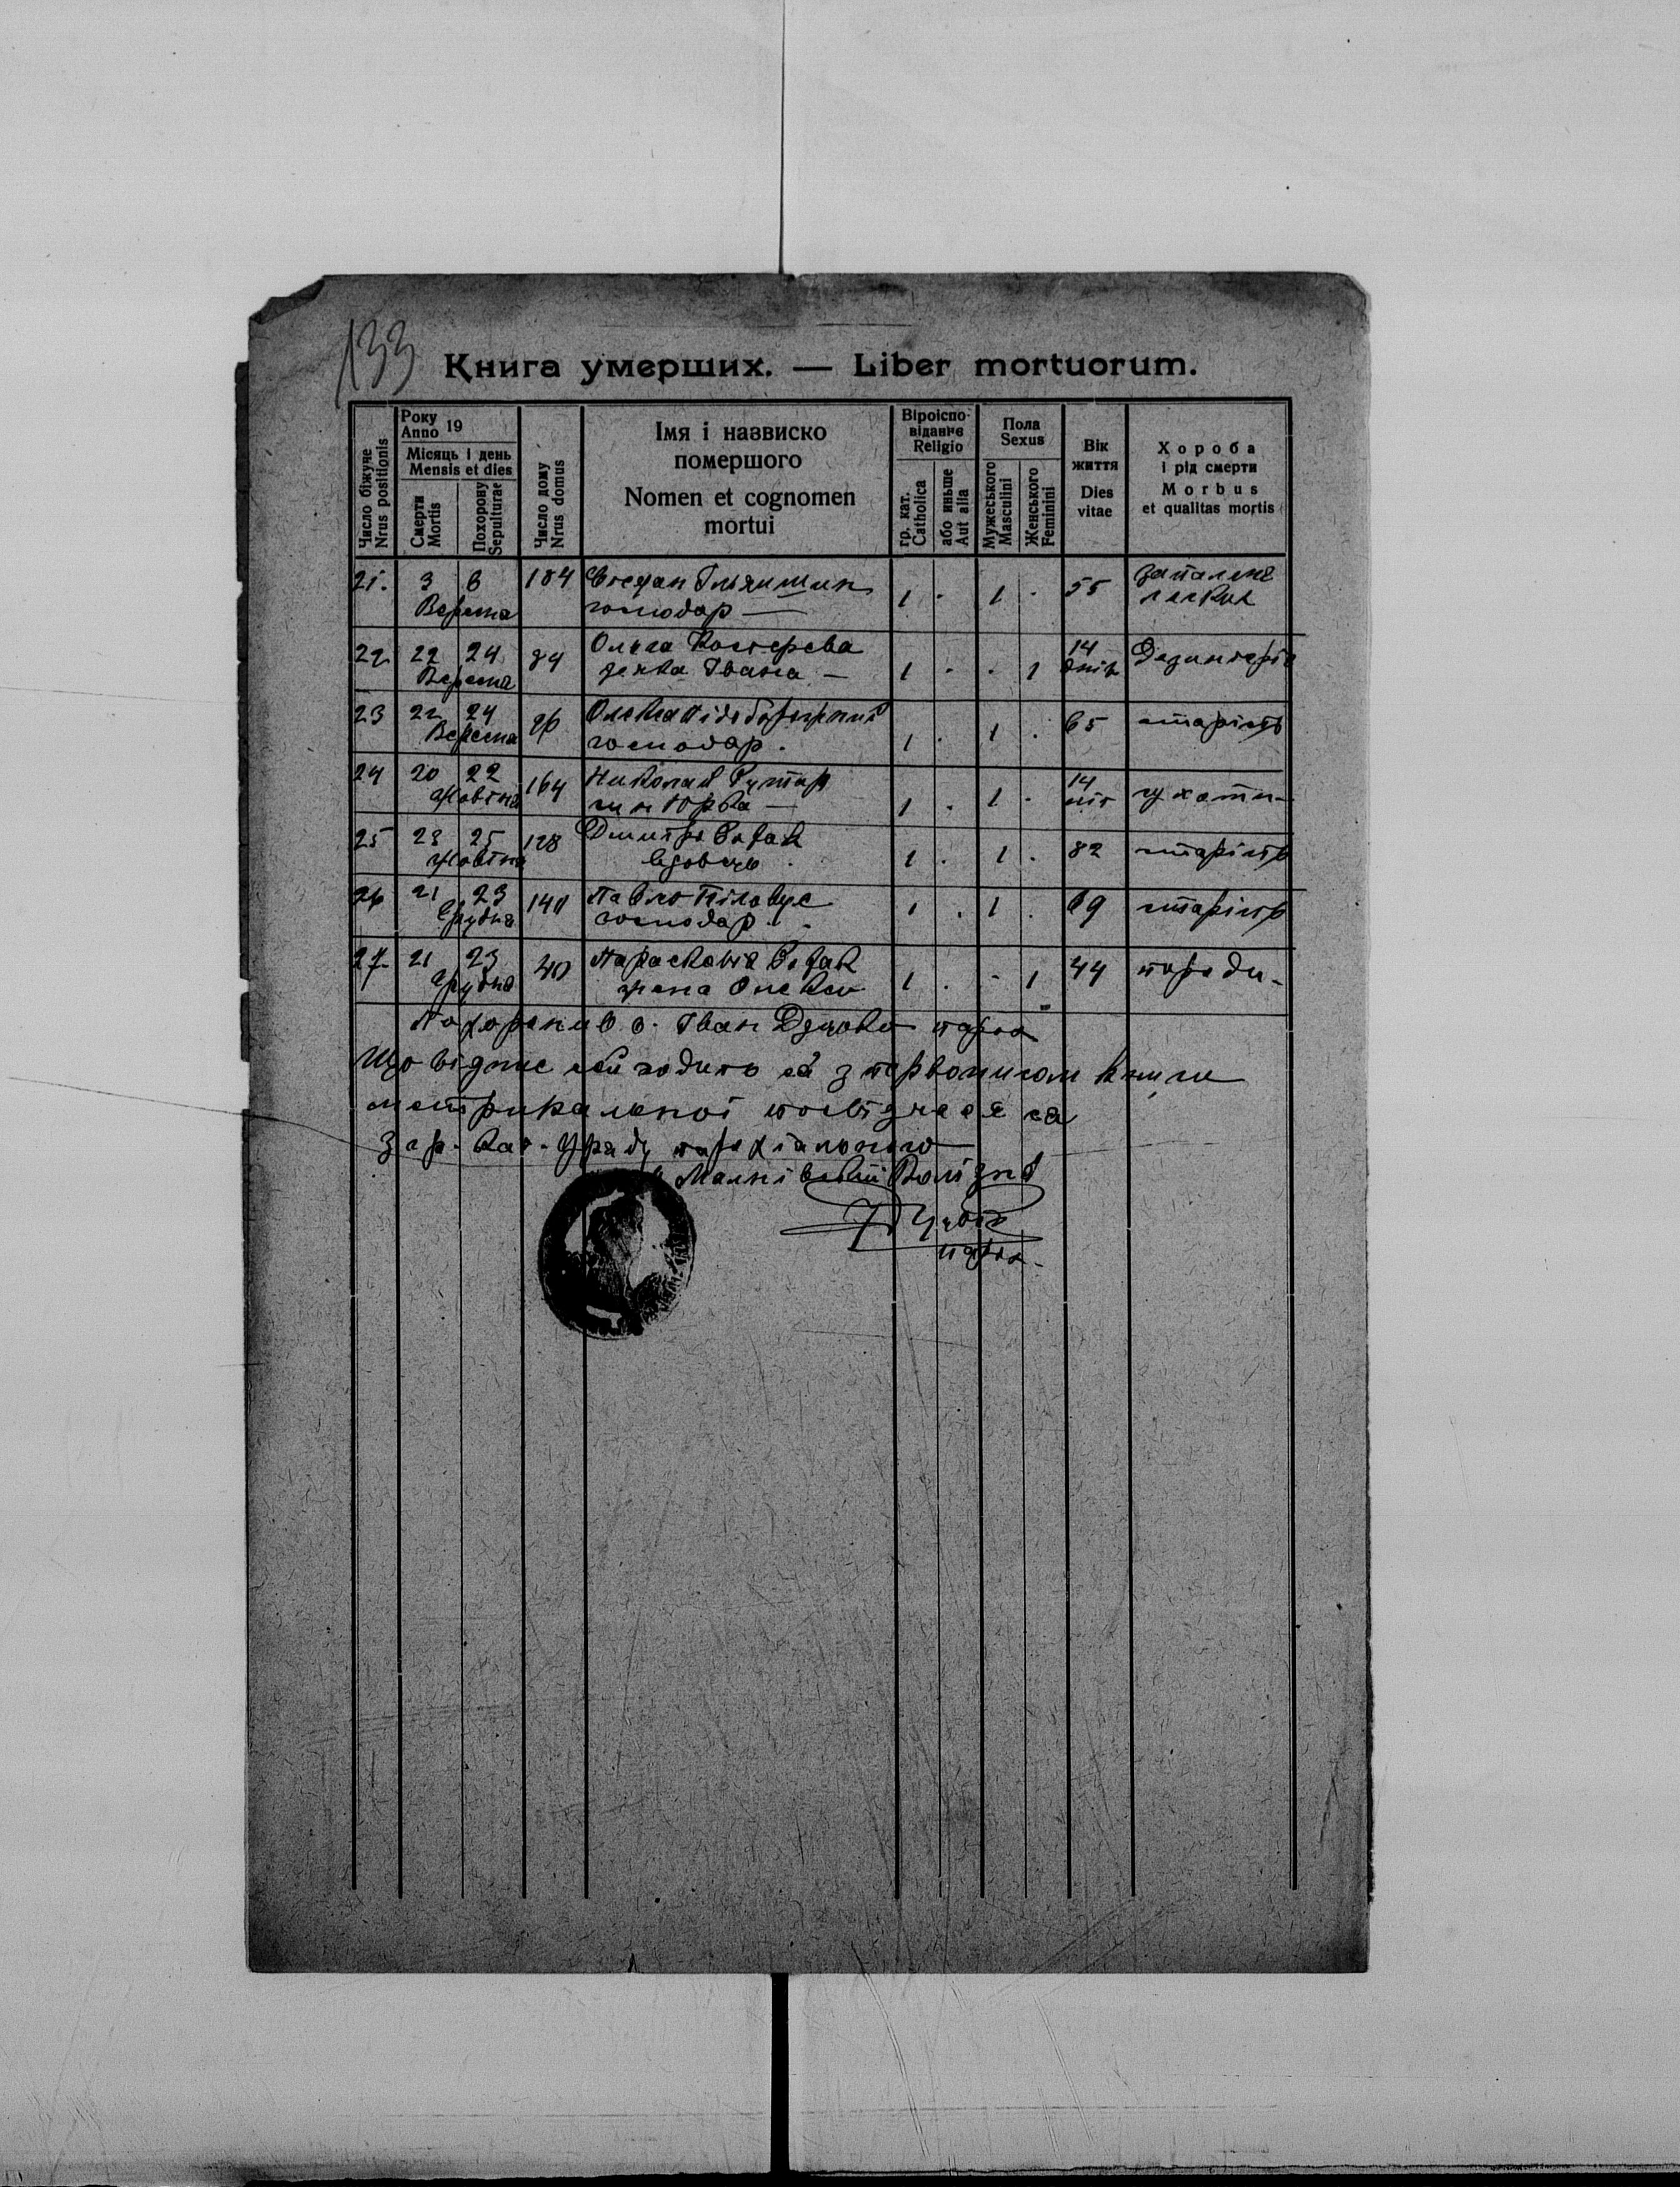 133
Книга умерших. — Liber mortuorum.
Число біжуче Nrus positionis
Року Anno 19
Місяць і день Mensis et dies
Смерти Mortis
Похорону Sepulturae
Число дому Nrus domus
Імя і назвиско
помершого
Nomen et cognomen
mortui
Віроіспо-
віданнє
Religio
гр. кат. Catholica
або иньше Aut alia
Пола
Sexus
Мужеського Masculini
Женського Feminini
Вік
життя
Dies
vitae
Хороба
і рід смерти
Morbus
et qualitas mortis
21. 3 6 184 Стефан Ільчишин 1 · 1 · 55 запаленє
Вересня господар — легких
22. 22 24 84 Ольга 1 · · 1 14 днів Дезинтерія
Вересня Івана —
23 22 24 Олекса 1 · 1 · 65 старість
Вересня господар.
24 20 22 164 Николай 1 · 1 · 14 літ сухоти
Жовтня син Юрка —
25 23 25 128 Дмитро 1 · 1 · 82 старість
Жовтня вдовець
26 21 23 140 Павло 1 · 1 · 69 старість
Грудня господар.
27. 21 23 40 Параскавія 1 · · 1 44 породи
Грудня жена Олекси
Похоронив о. Іван парох
Що відпис сей годить ся з первописом книги
метрикальної посвідчає ся
З гр. кат. Уряду парохіального
парох